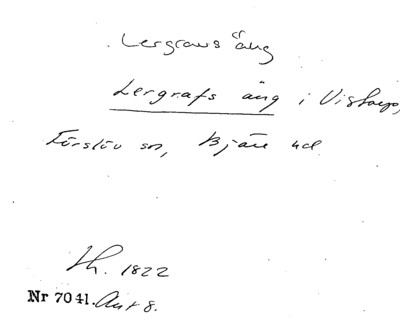 Lergravs äng
Lergrafs äng i Vistorp,
Förslöv sn, Bjäre hd
Lh. 1822
Nr 7041. Akt 8.